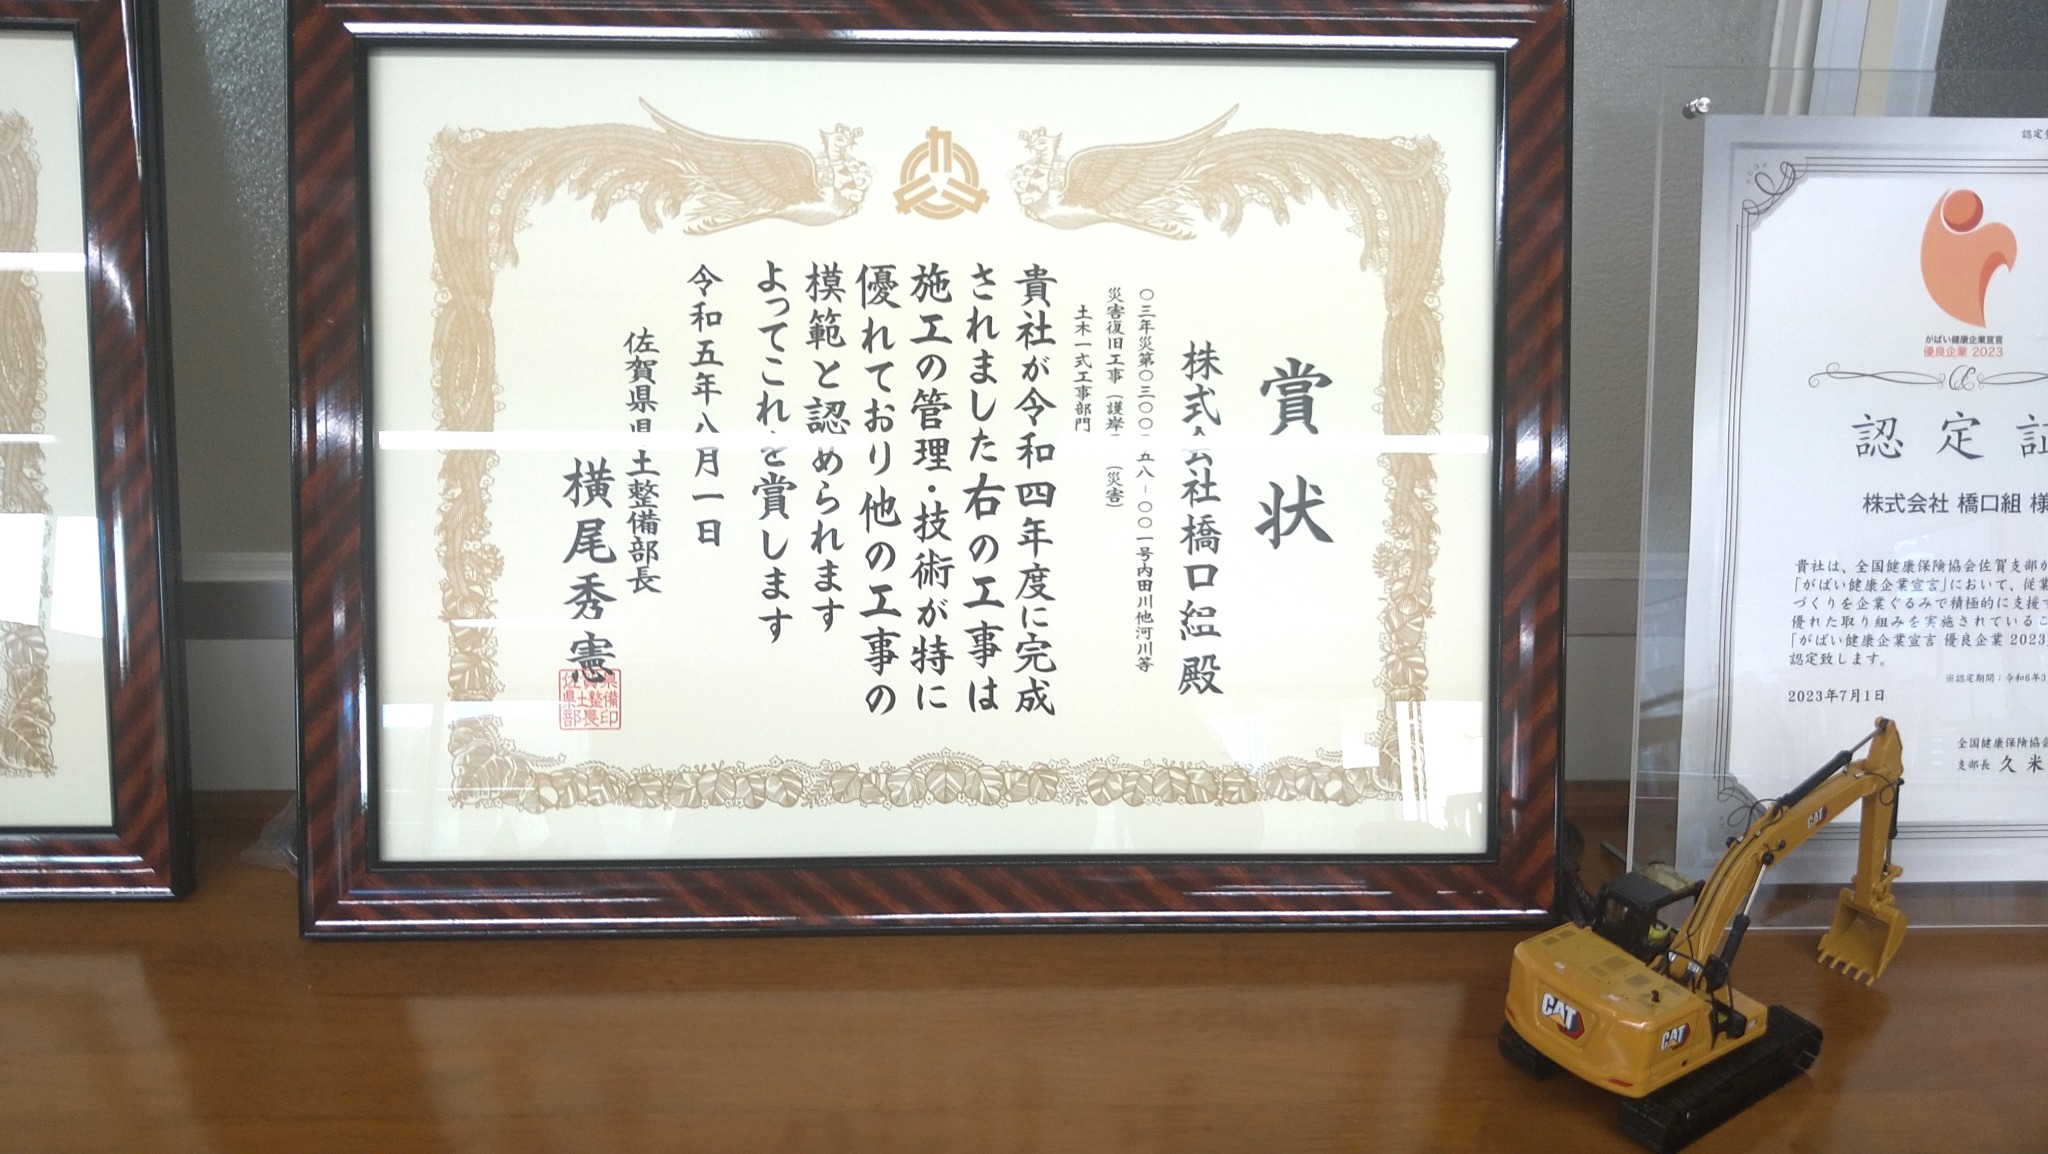 賞状
株式会社橋口組殿
〇三年災第〇三〇〇 五八－〇〇一号内田川他河川等
災害復旧工事（護岸 （災害）
土木一式工事部門
貴社が令和四年度に完成
されました右の工事は
施工の管理・技術が特に
優れており他の工事の
模範と認められます
よってこれを賞します
令和五年八月一日
佐賀県県土整備部長
横尾秀憲
がばい健康企業宣言
優良企業 2023
認定証
株式会社 橋口組 様
貴社は、全国健康保険協会佐賀支部が
「がばい健康企業宣言」において、従業
づくりを企業ぐるみで積極的に支援す
優れた取り組みを実施されているこ
「がばい健康企業宣言 優良企業 2023」
認定致します。
※認定期間：令和6年3
2023年7月1日
全国健康保険協会
支部長 久米
CAT
CAT
CAT